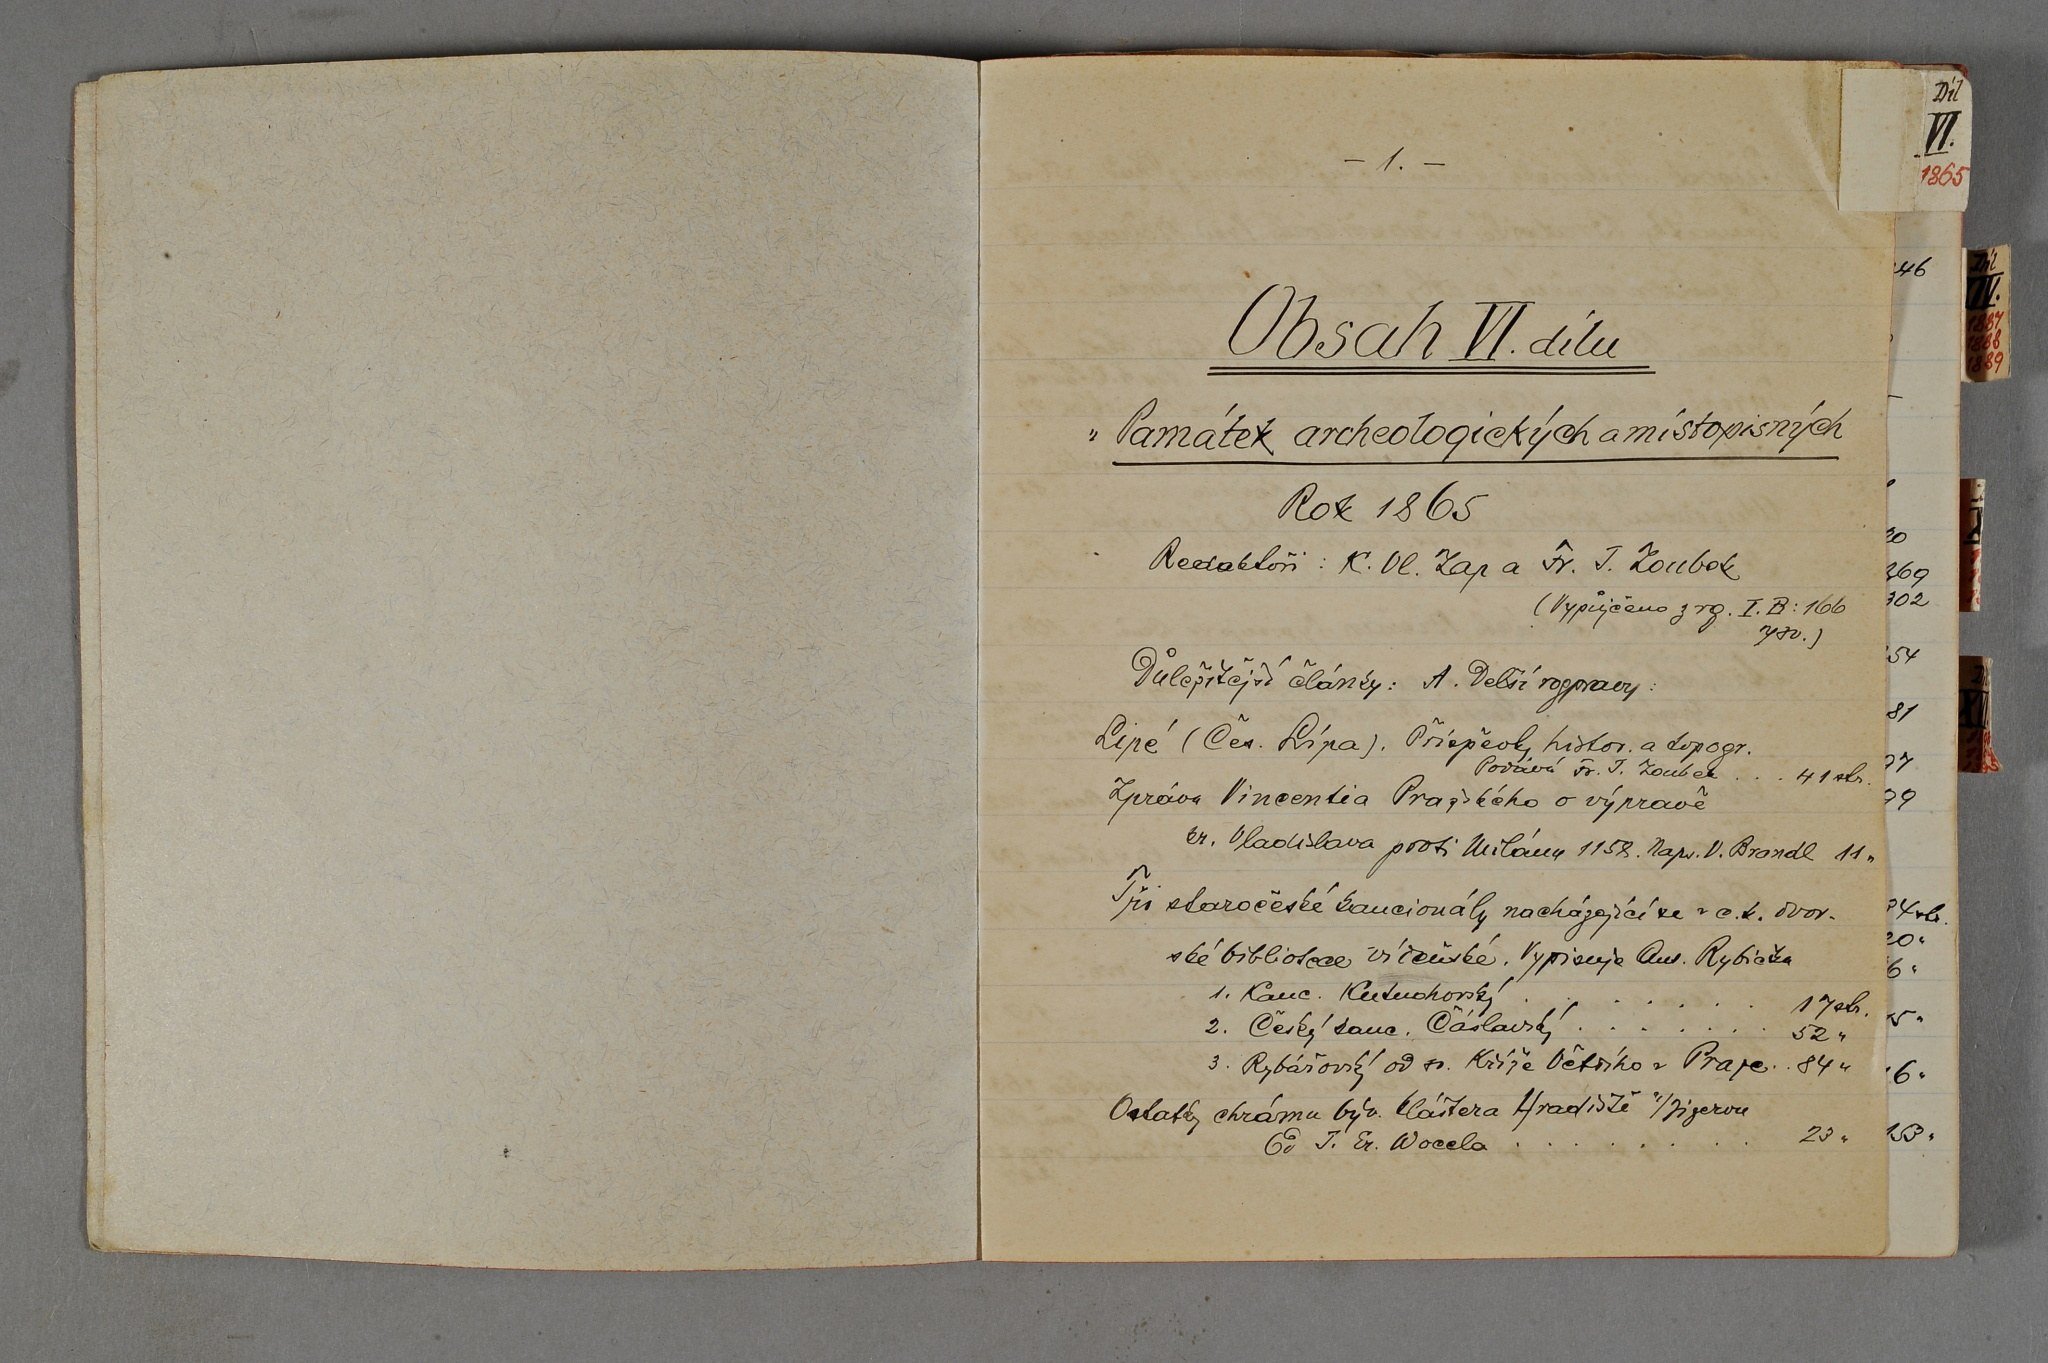 – 1. –
Obsah VI. dílu
„Památek archeologických a místopisných
Rok 1865
Redaktoři: K. Vl. Zap a Fr. J. Zoubek
(Vypůjčeno z rg. I. B: 166
Důležitější články: A. Delší rozpravy:
Lipé (Čes. Lípa). Příspěvky histor. a topogr.
Podává Fr. J. Zoubek . . . 41 str.
Zpráva Vincentia Pražského o výpravě
kr. Vladislava proti Milánu 1158. Naps. V. Brandl 11 „
Tři staročeské kancionály nacházející se v c. k. dvor-
ské bibliotece vídeňské. Vypisuje Ant. Rybička
1. Kanc. Kutnohorský . . . . . . . 17 str.
2. Český kanc. Čáslavský . . . . . . . 52 „
3. Rybářovský od sv. Kříže Většího v Praze . . 84 „
Ostatky chrámu býv. kláštera Hradiště n/Jizerou
Od J. Er. Wocela . . . . . . . . . 23 „
Díl
VI.
1865
46
Díl
IV.
1887
1888
1889
20
369
302
54
81
97
99
20 „
6 „
5 „
6 „
153 „